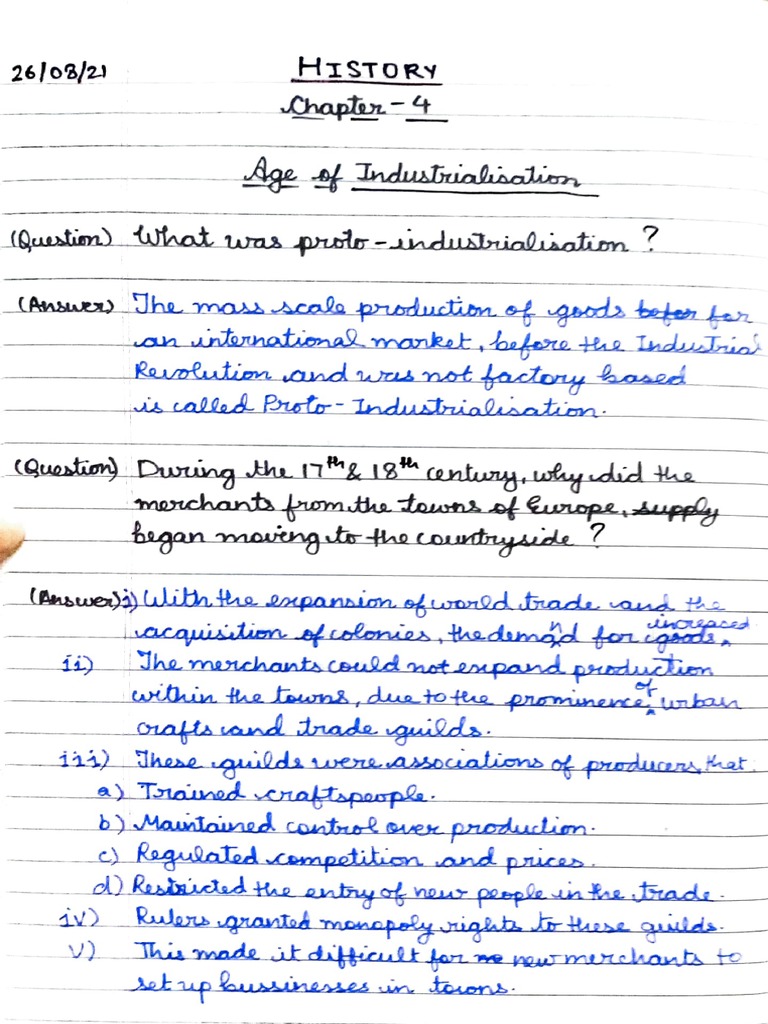 26/08/21
HISTORY
Chapter - 4
Age of Industrialisation
(Question) What was proto-industrialisation ?
(Answer) The mass scale production of goods befor for
an international market, before the Industrial
Revolution and was not factory based
is called Proto-Industrialisation.
(Question) During the 17th & 18th century, why did the
merchants from the towns of Europe, supply
began moving to the countryside ?
(Answer) i) With the expansion of world trade and the
acquisition of colonies, the demand for goods increased.
ii) The merchants could not expand production
within the towns, due to the prominence of urban
crafts and trade guilds.
iii) These guilds were associations of producers, that
a) Trained craftspeople.
b) Maintained control over production.
c) Regulated competition and prices.
d) Restricted the entry of new people in the trade.
iv) Rulers granted monopoly rights to these guilds.
v) This made it difficult for new merchants to
set up bussinesses in towns.